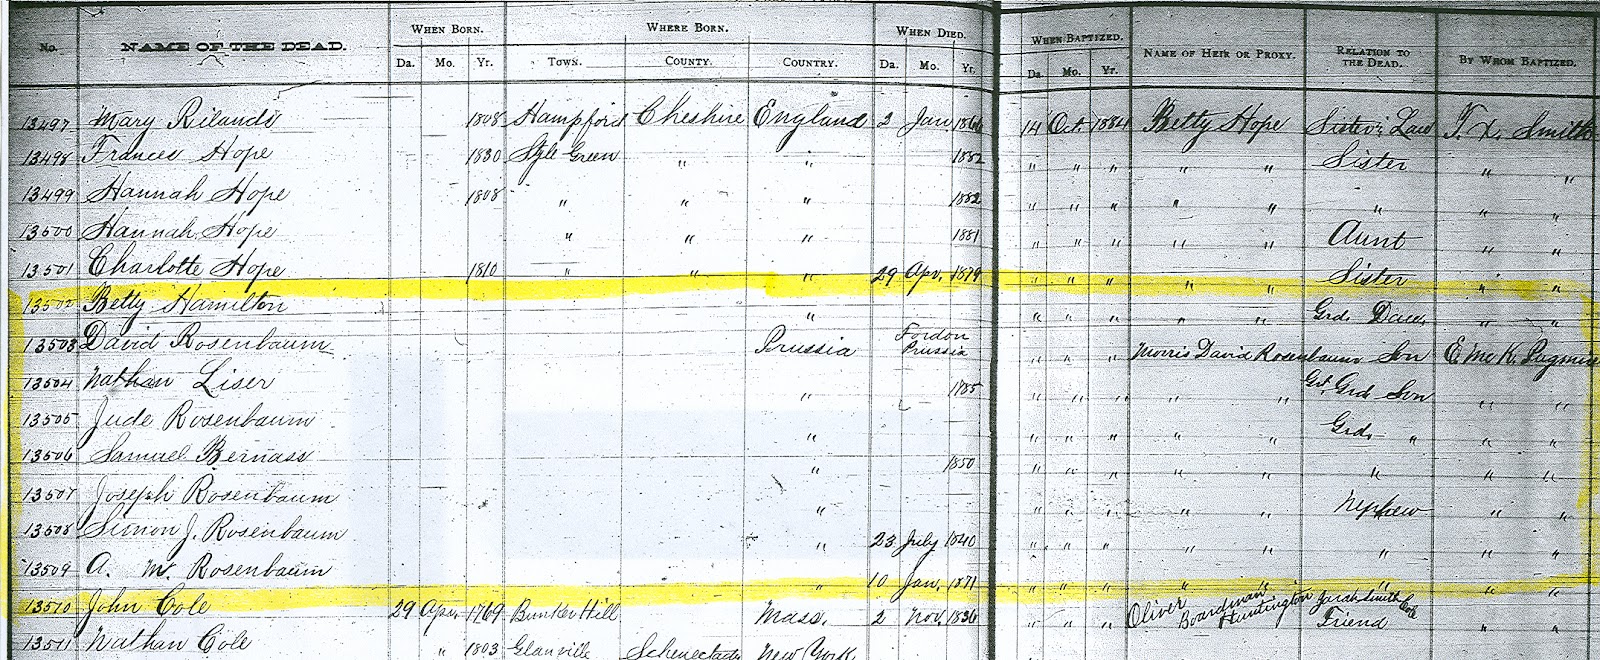 No. NAME OF THE DEAD. WHEN BORN. WHERE BORN. WHEN DIED. WHEN BAPTIZED. NAME OF HEIR OR PROXY. RELATION TO THE DEAD. BY WHOM BAPTIZED.
Da. Mo. Yr. TOWN. COUNTY. COUNTRY. Da. Mo. Yr. Da. Mo. Yr.
13497 Mary Rilands 1808 Hampford Cheshire England 2 Jan 1864 14 Oct. 1884 Betty Hope Sister in Law J. X. Smith
13498 Frances Hope 1830 Style Green " " 1882 " " " " " Sister " "
13499 Hannah Hope 1808 " " " 1882 " " " " " " " "
13500 Hannah Hope " " " 1881 " " " " " Aunt " "
13501 Charlotte Hope 1810 " " " 29 Apr. 1879 " " " " " Sister " "
13502 Betty Hamilton " " " " " " Grd. Dau. " "
13503 David Rosenbaum Prussia Fordon Prussia " " " Morris David Rosenbaum Son E. Mc K. Pugmire
13504 Nathan Liser " 1785 " " " " " Gt. Grd. Son " "
13505 Jude Rosenbaum " " " " " " Grd. " " "
13506 Samuel Bernass " 1850 " " " " " " " "
13507 Joseph Rosenbaum " " " " " " Nephew " "
13508 Simon J. Rosenbaum " 23 July 1840 " " " " " " " "
13509 A. M. Rosenbaum " 10 Jan. 1871 " " " " " " " "
13510 John Cole 29 Apr. 1769 Bunker Hill Mass. 2 Nov. 1836 " " " Oliver Boardman Huntington Sarah Smith Cole Friend " "
13511 Nathan Cole " 1803 Glanville Schenectady New York